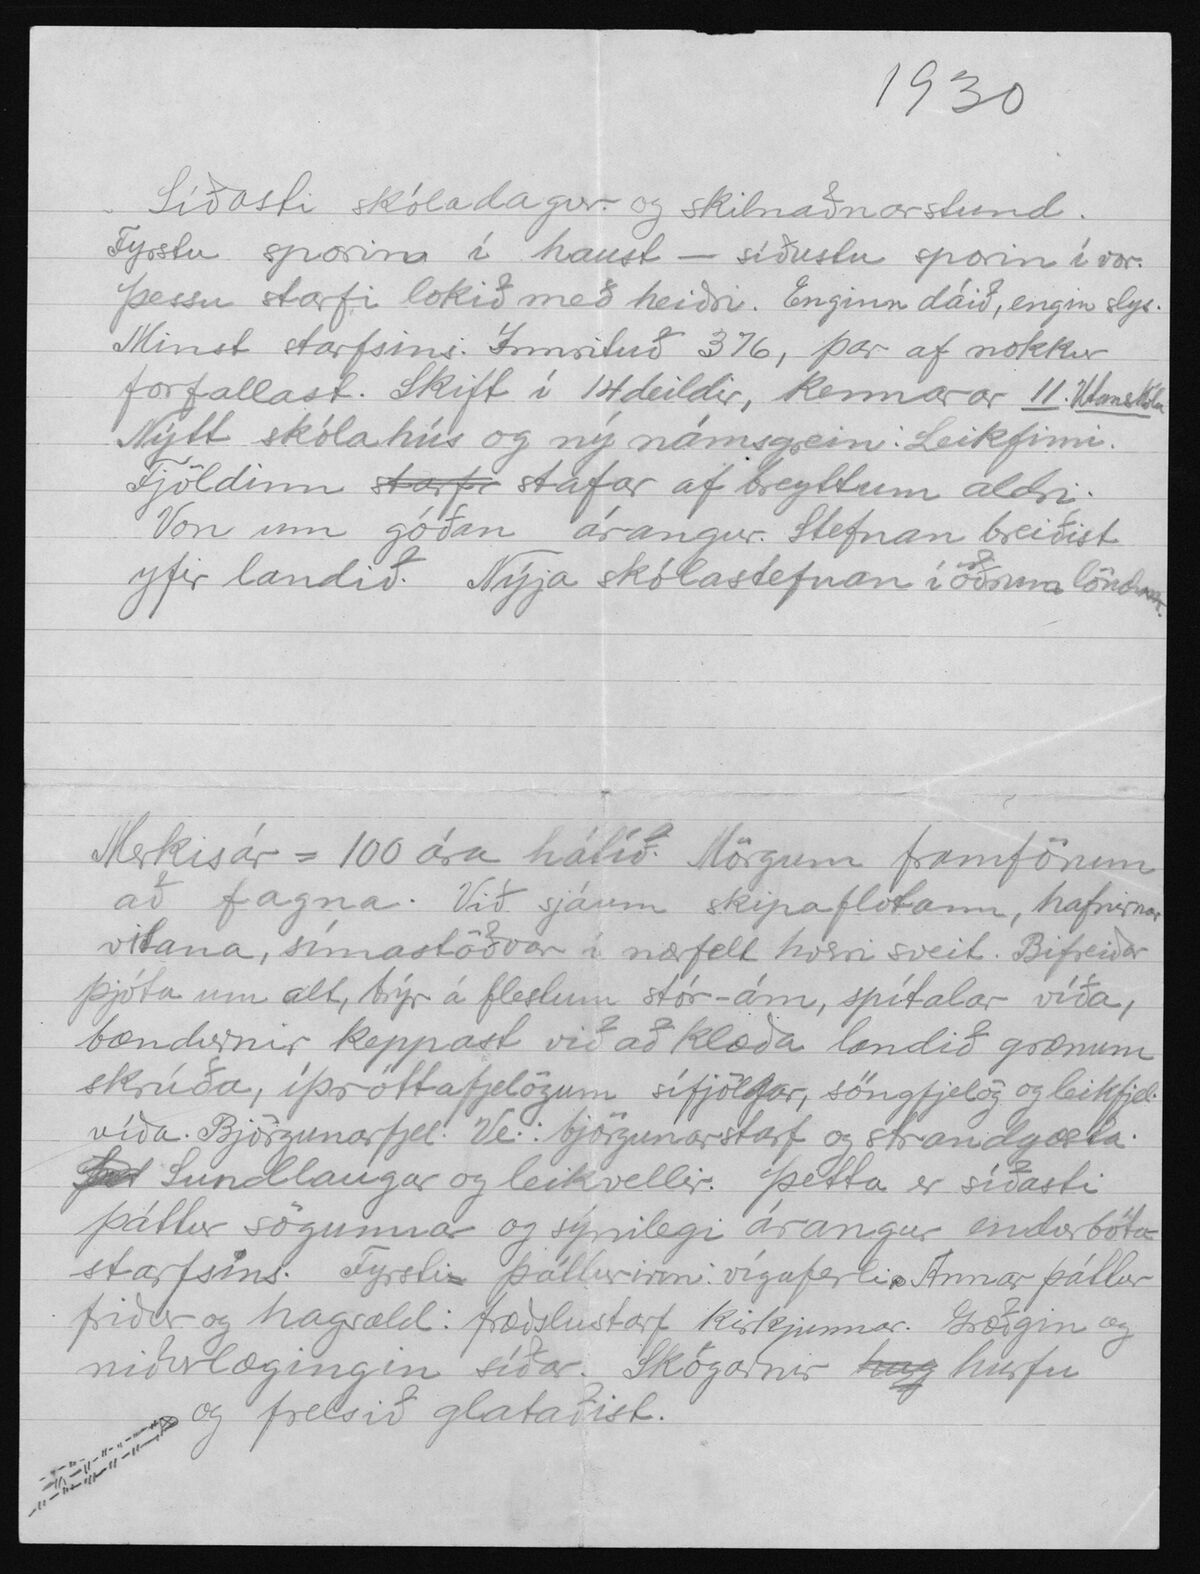 1930
Síðasti skóladagur og skilnaðnarstund.
Fyrstu sporin í haust — síðustu sporin í vor.
Þessu starfi lokið með heiðri. Enginn dáið, engin slys.
Minst starfsins: Innrituð 376, þar af nokkur
forfallast. Skift í 14 deildir, kennarar 11. Utanskóla
Nýtt skólahús og ný námsgrein: Leikfimi.
Fjöldinn starfr stafar af breyttum aldri.
Von um góðan árangur. Stefnan breiðist
yfir landið. Nýja skólastefnan í öðrum löndum.
Merkisár = 100 ára hátíð. Mörgum framförum
að fagna. Við sjáum skipaflotann, hafnirnar
vitana, símastöðvar í nærfelt hverri sveit. Bifreiðar
þjóta um alt, brýr á flestum stór-ám, spítalar víða,
bændurnir keppast við að klæða landið grænum
skrúða, íþróttafjelögum sífjölgar, söngfjelög og leikfjel.
víða. Björgunarfjel. Ve.: björgunarstarf og strandgæsla.
Sundlaugar og leikvellir. Þetta er síðasti
þáttur sögunnar og sýnilegi árangur endurbóta
starfsins. Fyrsti þátturinn: vígaferli. Annar þáttur
friður og hagsæld: fræðslustarf kirkjunnar. Græðgin og
niðurlægingin síðar. Skógarnir hurfu
og frelsið glataðist.